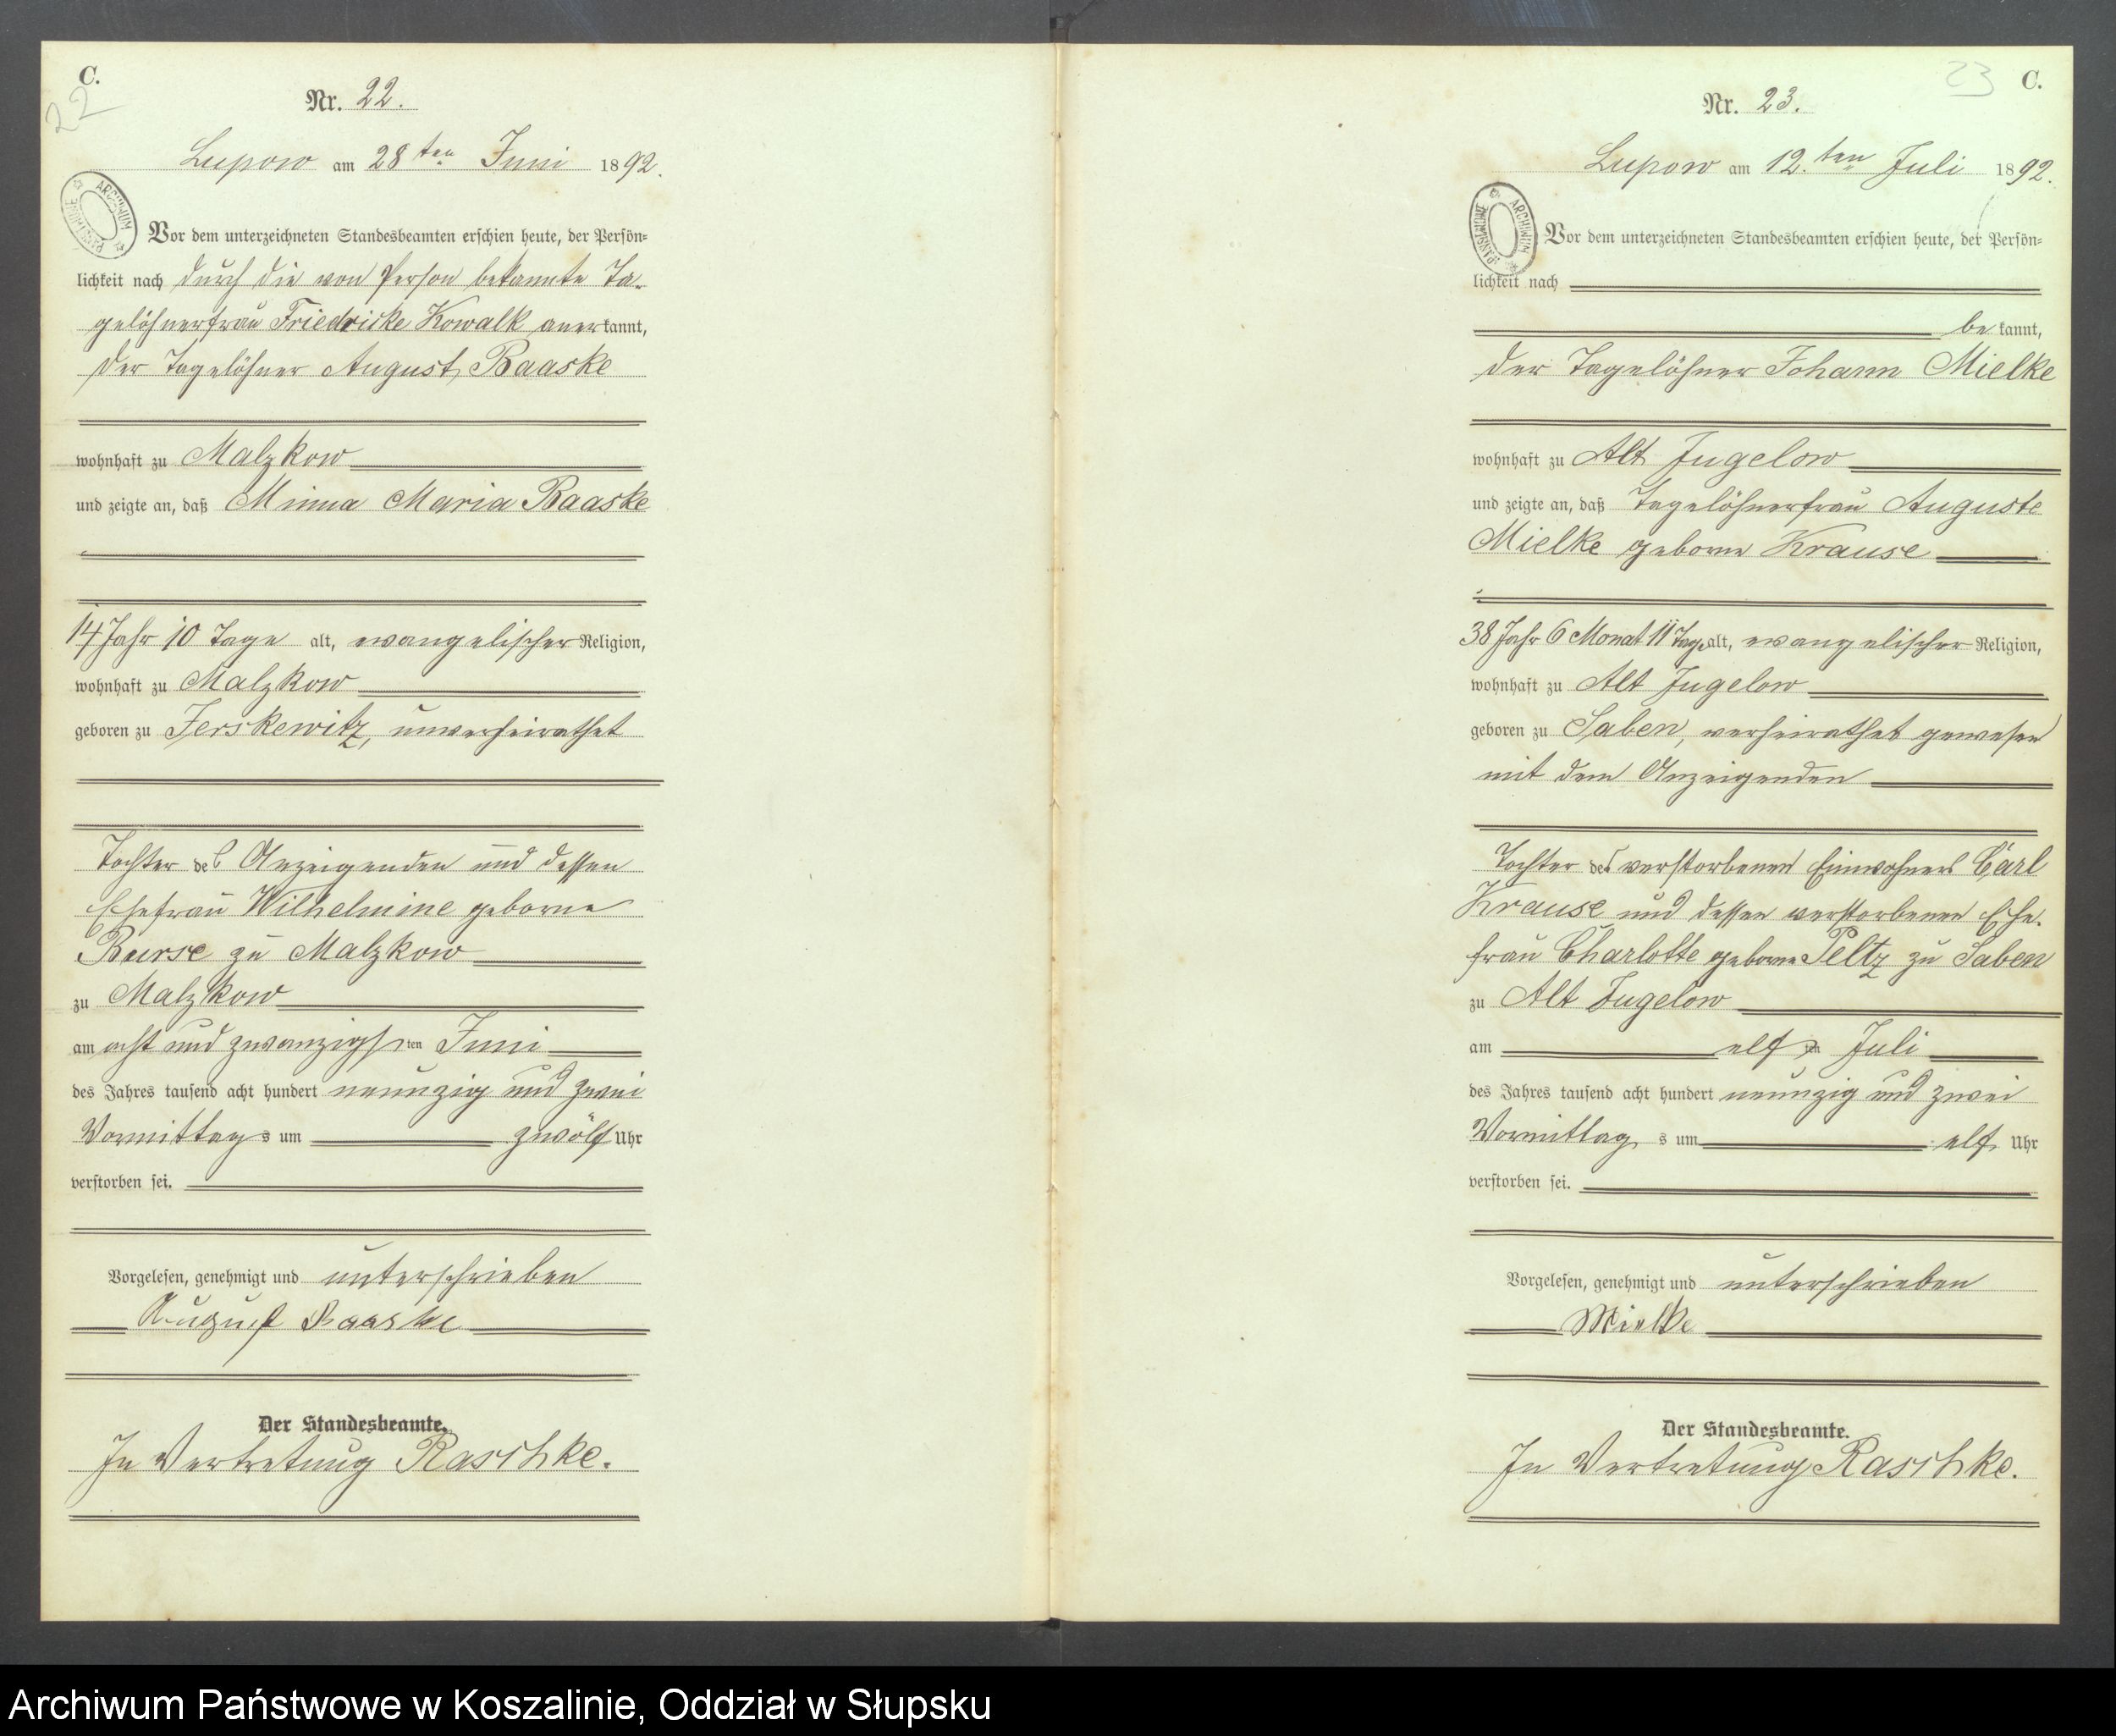 C.
22
Nr. 22.
Lupow am 28ten Juni 1892.
ARCHIWUM PAŃSTWOWE
Vor dem unterzeichneten Standesbeamten erschien heute, der Persön=
lichkeit nach durch die von Person bekannte Ta-
gelöhnerfrau Friedricke Kowalk anerkannt,
der Tagelöhner August Baaske
wohnhaft zu Malzkow
und zeigte an, daß Minna Maria Baaske
14 Jahr 10 Tage alt, evangelischer Religion,
wohnhaft zu Malzkow
geboren zu Jerskewitz, unverheirathet
Tochter des Anzeigenden und dessen
Ehefrau Wilhelmine geborne
Burse zu Malzkow
zu Malzkow
am acht und zwanzigsten Juni
des Jahres tausend acht hundert neunzig und zwei
Vormittags um zwölf Uhr
verstorben sei.
Vorgelesen, genehmigt und unterschrieben
August Baaske
Der Standesbeamte.
In Vertretung Raschke.
23
C.
Nr. 23.
Lupow am 12.ten Juli 1892.
ARCHIWUM PAŃSTWOWE
Vor dem unterzeichneten Standesbeamten erschien heute, der Persön=
lichkeit nach
be kannt,
der Tagelöhner Johann Mielke
wohnhaft zu Alt Jugelow
und zeigte an, daß Tagelöhnerfrau Auguste
Mielke geborne Krause
38 Jahr 6 Monat 11 Tage alt, evangelischer Religion,
wohnhaft zu Alt Jugelow
geboren zu Saben, verheirathet gewesen
mit dem Anzeigenden
Tochter des verstorbenen Einwohners Carl
Krause und dessen verstorbenen Ehe-
frau Charlotte geborne Peltz zu Saben
zu Alt Jugelow
am elften Juli
des Jahres tausend acht hundert neunzig und zwei
Vormittags um elf Uhr
verstorben sei.
Vorgelesen, genehmigt und unterschrieben
Mielke
Der Standesbeamte.
In Vertretung Raschke.
Archiwum Państwowe w Koszalinie, Oddział w Słupsku